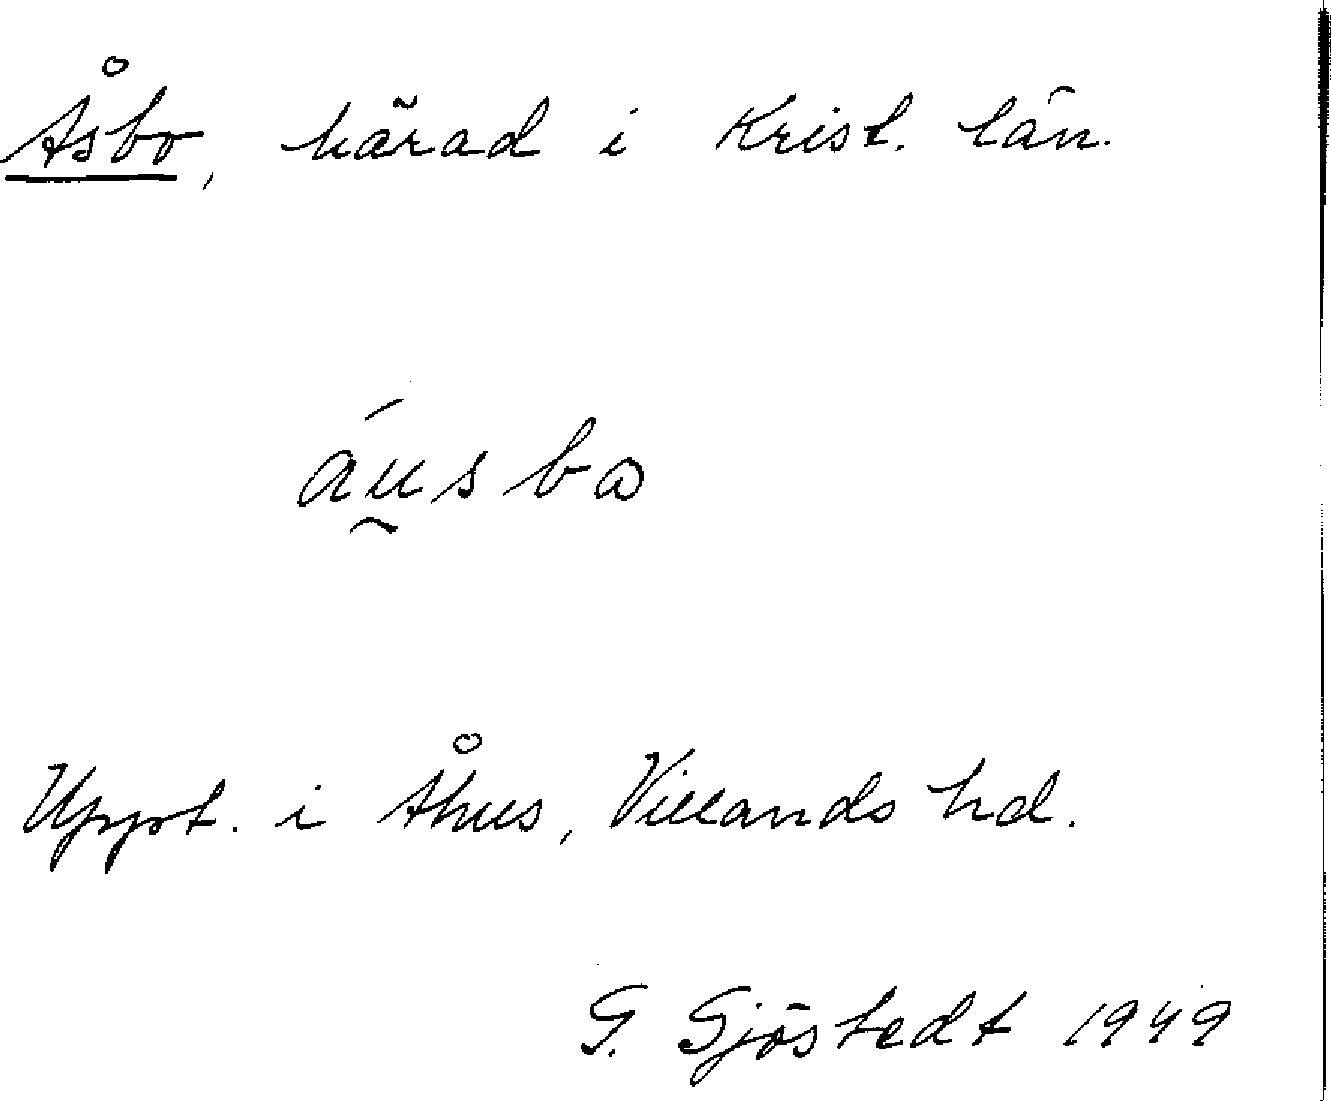 Åsbo, härad i Krist. län.
áu̯sbɷ
Uppt. i Åhus, Villands hd.
G. Sjöstedt 1949